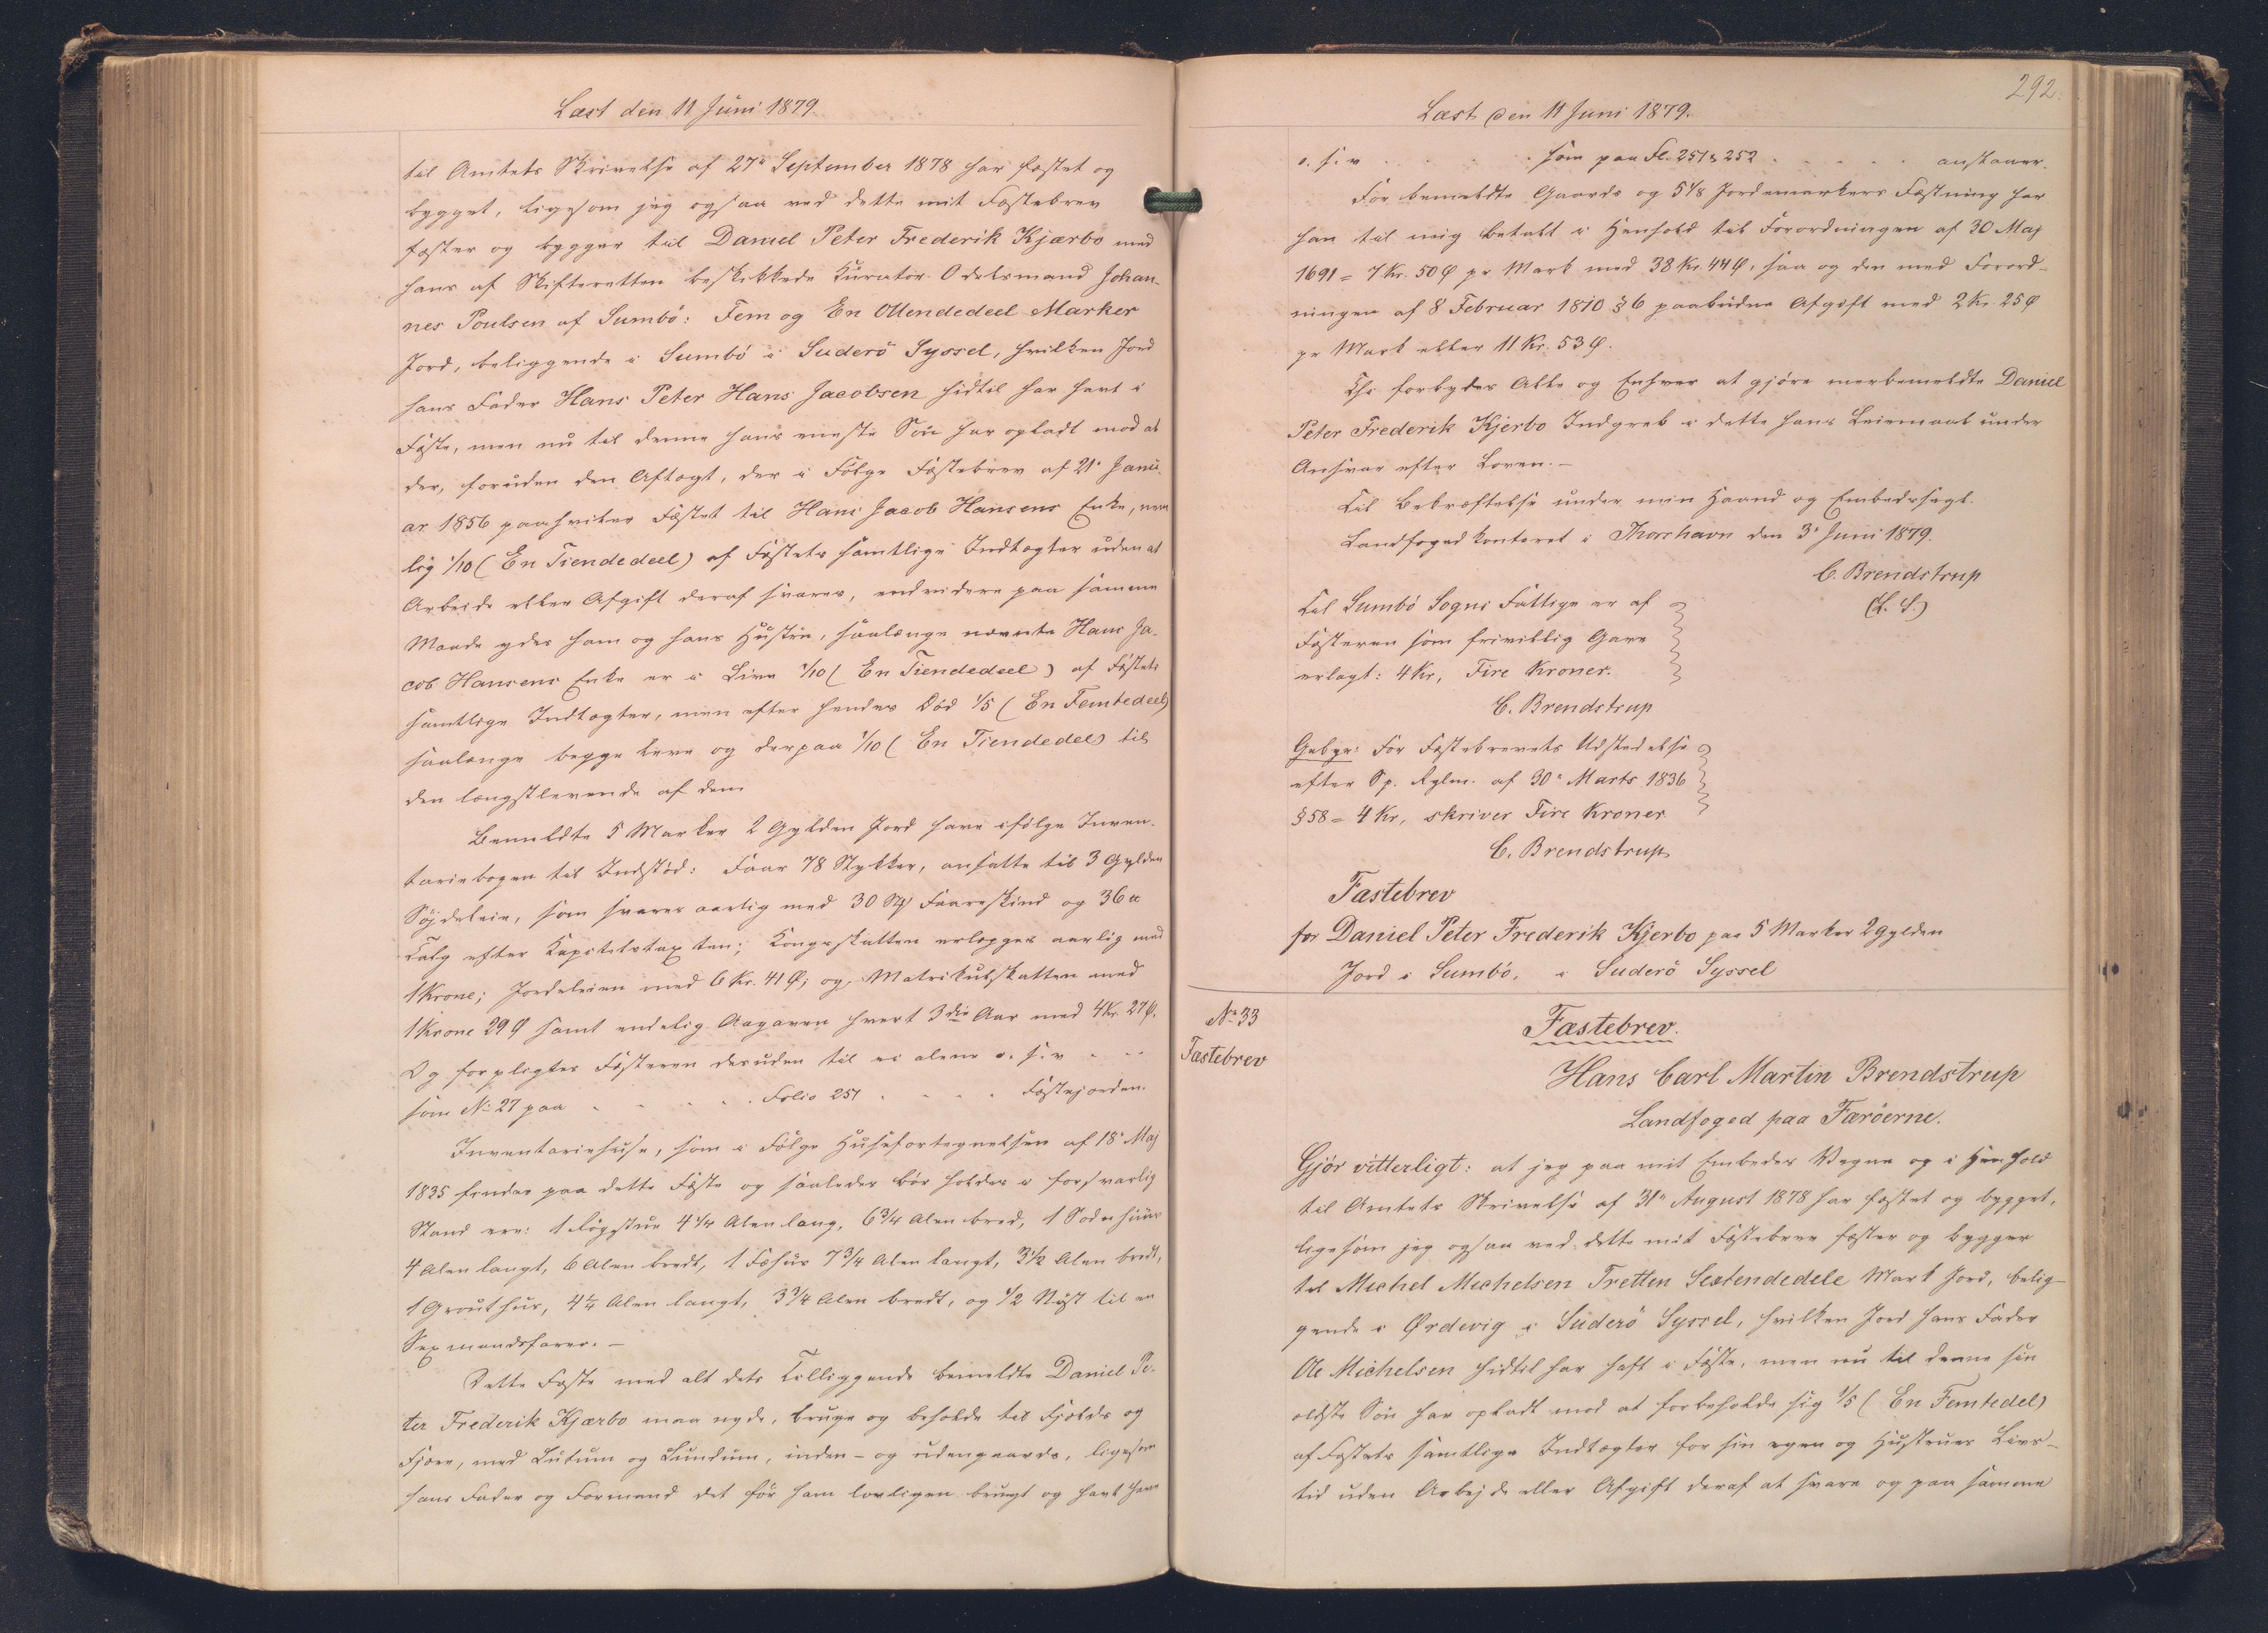 Læst den 11 Juni 1879.
til Amtets Skrivelse af 27de September 1878 har fæstet og
bygget, ligesom jeg ogsaa ved dette mit Fæstebrev
fæster og bygger til Daniel Peter Frederik Kjærbo med
hans af Skifteretten beskikkede Kurator Odelsmand Johan-
nes Poulsen af Sumbö: Fem og En Ottendedeel Marker
Jord, beliggende i Sumbö i Suderö Syssel, hvilken Jord
hans Fader Hans Peter Hans Jacobsen hidtil har havt i
Fæste, men nu til denne hans eneste Søn har opladt mod at
der, foruden den Aftægt, der i Følge Fæstebrev af 21de Janu-
ar 1856 paahviler Fæstet til Hans Jacob Hansens Enke, nem
lig 1/10 (En Tiendedeel) af Fæstets samtlige Indtægter uden at
Arbeide eller Afgift deraf svares, endvidere paa samme
Maade ydes ham og hans Hustru, saalænge nævnte Hans Ja-
cob Hansens Enke er i Live 1/10 (En Tiendedeel) af Fæstets
samtlige Indtægter, men efter hendes Død 1/5 (En Femtedeel)
saalænge begge leve og derpaa 1/10 (En Tiendedel) til
den længstlevende af dem
Bemeldte 5 Marker 2 Gylden Jord have ifølge Inven-
tariebogen til Indstød: Faar 78 Stykker, ansatte til 3 Gylden
Søjdeleie, som svares aarlig med 30 Stk Faareskind og 36 ℔
Talg efter Kapitelstaxten; Kongsskatten erlægges aarlig med
1 Krone; Jordeleien med 6 Kr. 41 Ø; og Matrikulskatten med
1 Krone 29 Ø samt endelig Aagaven hvert 3die Aar med 4 Kr. 27 Ø.
Og forpligtes Fæsteren desuden til ei alene o. s. v. . .
som No 27 paa . . . . . Folio 251 . . . . Fæstejorden.
Inventariehuse, som i Følge Husefortegnelsen af 18de Maj
1835 findes paa dette Fæste og saaledes bør holdes i forsvarlig
Stand ere: 1 Røgstue 4 1/4 Alen lang, 6 3/4 Alen bred, 1 Sodnhuus
4 Alen langt, 6 Alen bredt, 1 Fæhus 7 3/4 Alen langt, 3 1/2 Alen bredt,
1 Grouthus, 4 1/4 Alen langt, 3 3/4 Alen bredt, og 1/2 Nøst til en
Sexmandsfarer. –
Dette Fæste med alt dets Tilliggende bemeldte Daniel Pe-
ter Frederik Kjærbo maa nyde, bruge og beholde til Fjelds og
Fjære, med Lutum og Lundum, inden- og udengaards, ligesom
hans Fader og Formænd det før ham lovligen brugt og havt have
292.
Læst den 11 Juni 1879.
o. s. v. . . . . . som paa Fl. 251 & 252 . . . . . anstaaer.
For bemeldte Gaards og 5 1/8 Jordemarkers Fæstning har
han til mig betalt i Henhold til Forordningen af 30 Maj
1691 = 7 Kr. 50 Ø pr Mark med 38 Kr. 44 Ø, saa og den med Forord-
ningen af 8 Februar 1810 § 6 paabudne Afgift med 2 Kr. 25 Ø
pr Mark eller 11 Kr. 53 Ø.
Thi forbydes Alle og Enhver at gjöre merbemeldte Daniel
Peter Frederik Kjerbo Indgreb i dette hans Leiemaal under
Ansvar efter Loven. –
Til Bekræftelse under min Haand og Embedssegl.
Landfogedkontoret i Thorshavn den 3de Juni 1879.
C. Brendstrup
(L. S.)
Til Sumbö Sogns Fattige er af
Fæsteren som frivillig Gave
erlagt: 4 Kr, Fire Kroner.
C. Brendstrup
Gebyr: For Fæstebrevets Udstedelse
efter Sp. Rglm. af 30te Marts 1836
§ 58 = 4 Kr, skriver Fire Kroner
C. Brendstrup
Fæstebrev
for Daniel Peter Frederik Kjerbo paa 5 Marker 2 Gylden
Jord i Sumbö, i Suderö Syssel
No 33
Fæstebrev
Fæstebrev.
Hans Carl Martin Brendstrup
Landfoged paa Færöerne.
Gjör vitterligt: at jeg paa mit Embedes Vegne og i Henhold
til Amtets Skrivelse af 31te August 1878 har fæstet og bygget,
ligesom jeg ogsaa ved dette mit Fæstebrev fæster og bygger
til Michel Michelsen Tretten Sextendedele Mark Jord, belig-
gende i Ørdevig i Suderö Syssel, hvilken Jord hans Fader
Ole Michelsen hidtil har haft i Fæste, men nu til denne sin
ældste Søn har opladt mod at forbeholde sig 1/5 (En Femtedel)
af Fæstets samtlige Indtægter for sin egen og Hustrues Livs-
tid uden Arbejde eller Afgift deraf at svare og paa samme